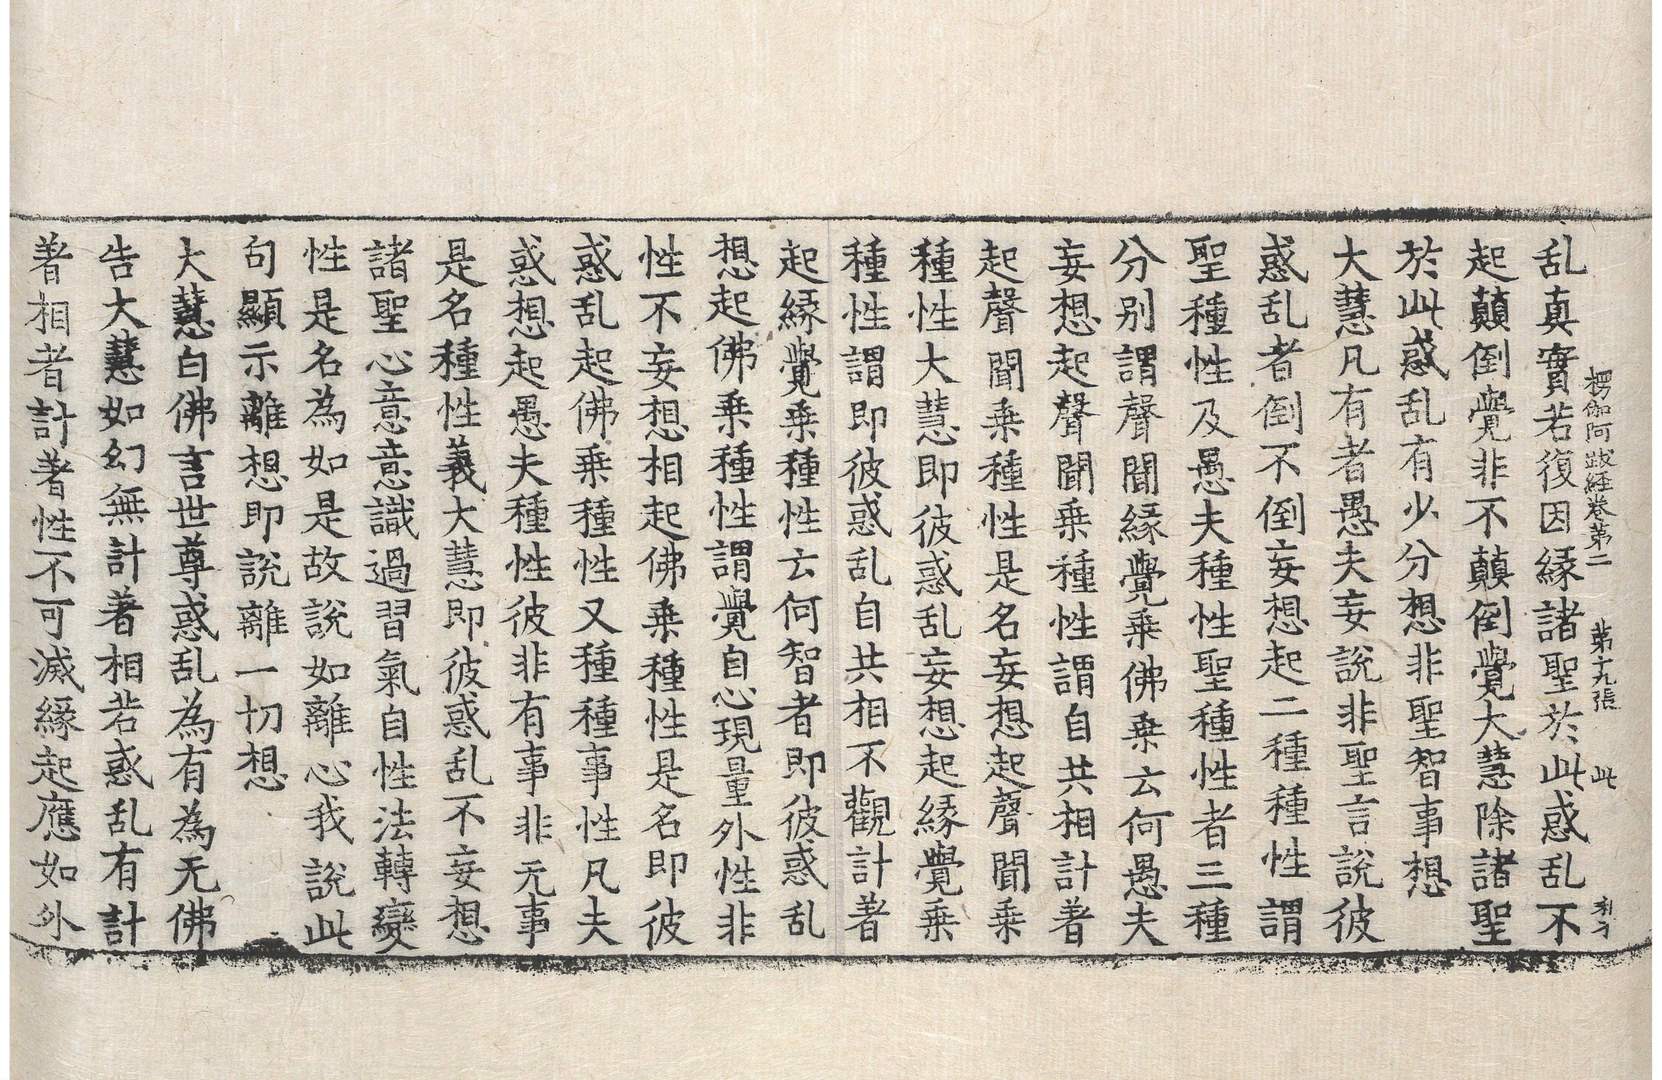 楞伽阿跋經卷第二 第十九張 此
乱真實若復因縁諸聖於此惑乱不
起顛倒覺非不顛倒覺大慧除諸聖
於此惑乱有少分想非聖智事想
大慧凡有者愚夫妄說非聖言說彼
惑乱者倒不倒妄想起二種種性謂
聖種性及愚夫種性聖種性者三種
分別謂聲聞縁覺乗佛乗云何愚夫
妄想起聲聞乗種性謂自共相計著
起聲聞乗種性是名妄想起聲聞乗
種性大慧即彼惑乱妄想起縁覺乗
種性謂即彼惑乱自共相不觀計著
起縁覺乗種性云何智者即彼惑乱
想起佛乗種性謂覺自心現量外性非
性不妄想相起佛乗種性是名即彼
惑乱起佛乗種性又種種事性凡夫
惑想起愚夫種性彼非有事非无事
是名種性義大慧即彼惑乱不妄想
諸聖心意意識過習氣自性法轉變
性是名為如是故說如離心我說此
句顯示離想即說離一切想
大慧白佛言世尊惑乱為有為无佛
告大慧如幻無計著相若惑乱有計
著相者計著性不可滅縁起應如外